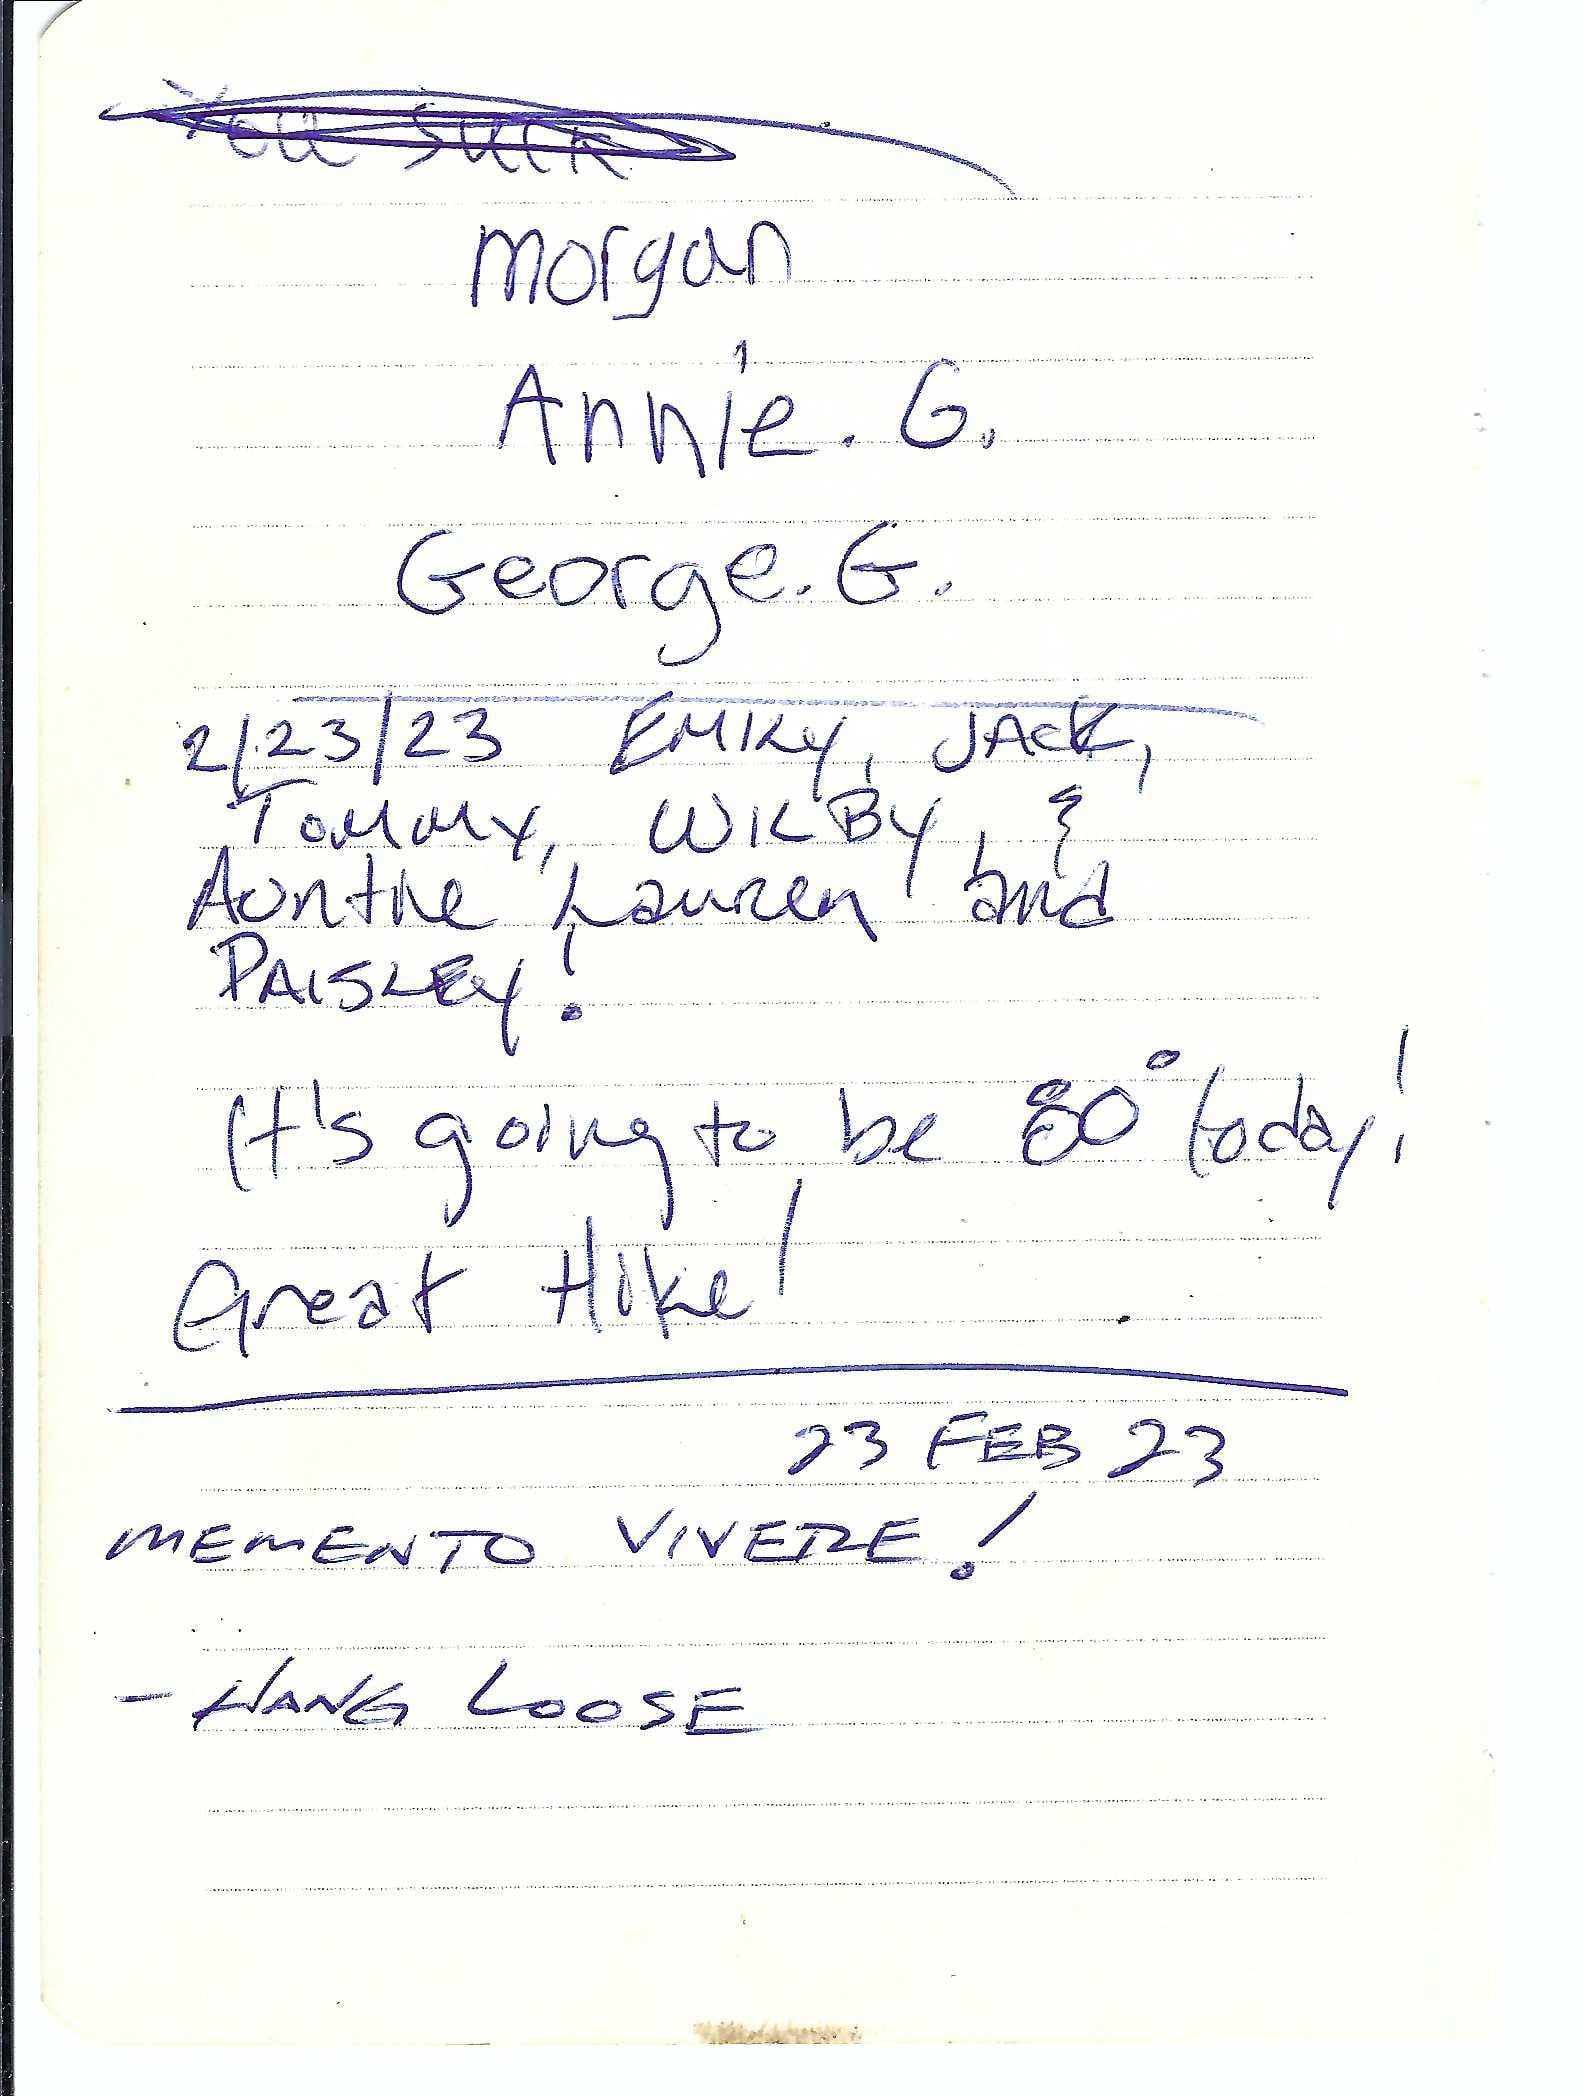 You Suck
Morgan
Annie. G.
George. G.
2/23/23 EMILY, JACK,
TOMMY, WILBY, &
Auntie Lauren and
PAISLEY!
It's going to be 80° today!
Great Hike!
23 FEB 23
MEMENTO VIVERE!
- HANG LOOSE